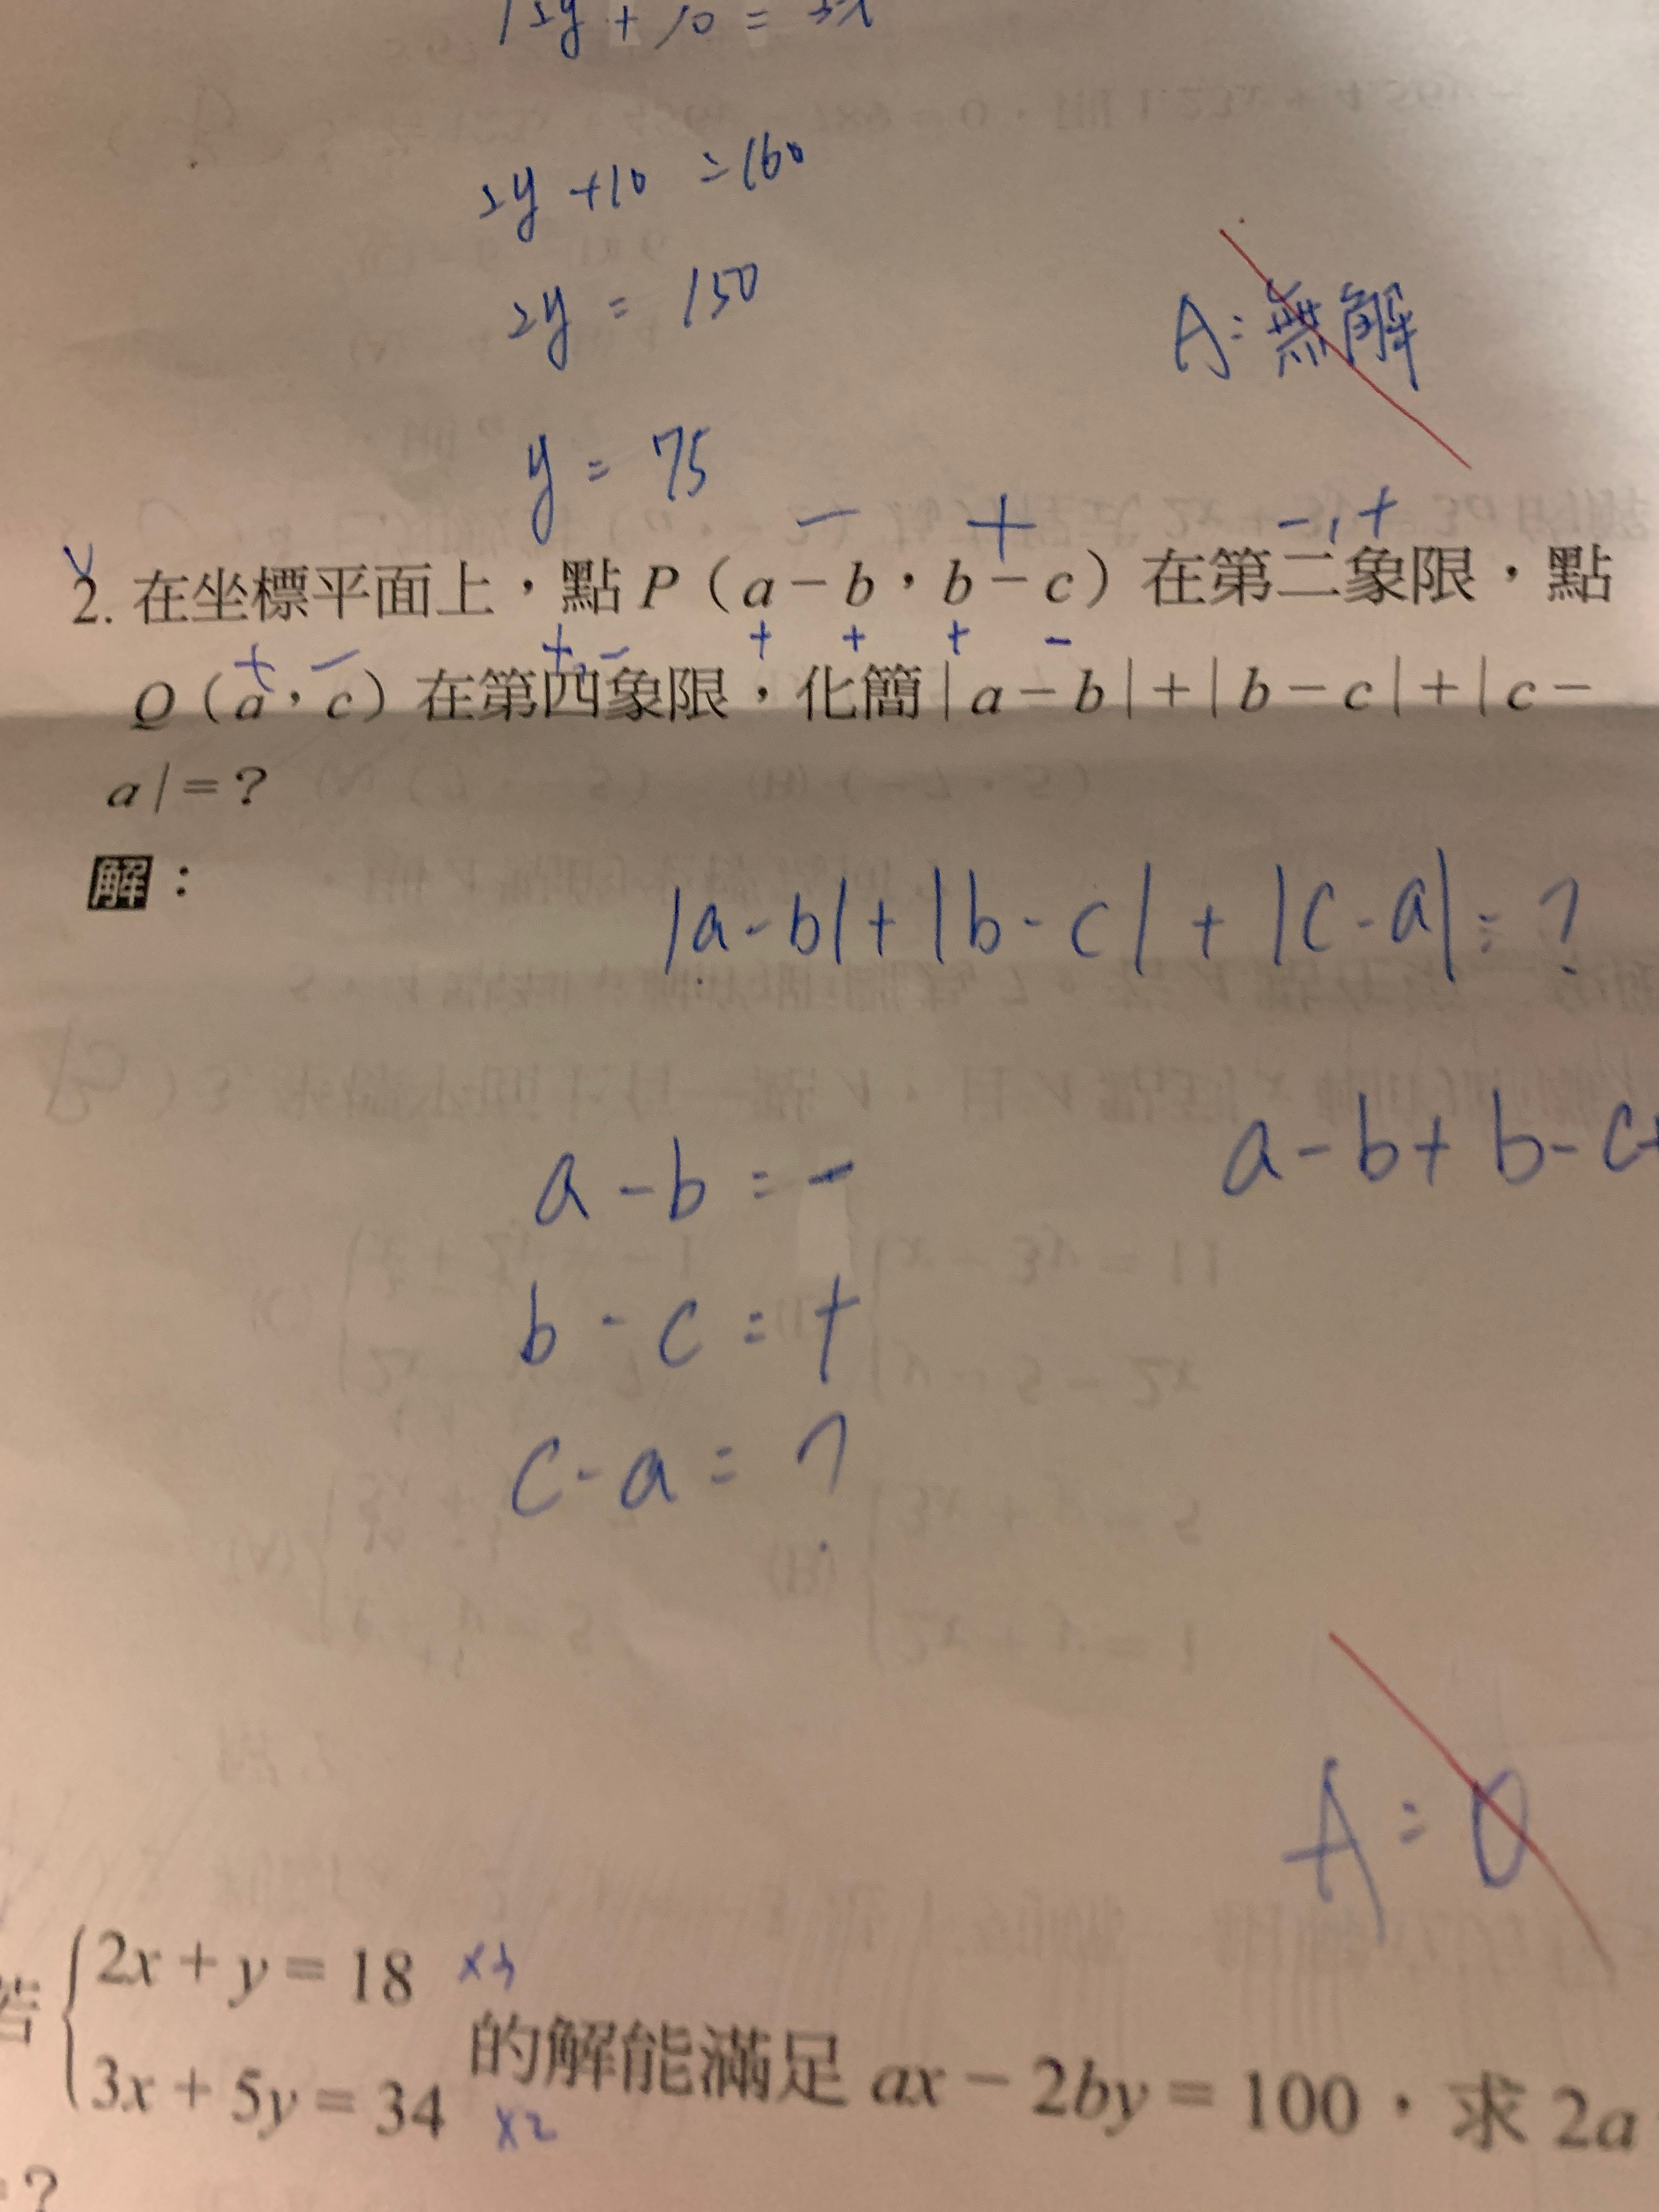 2y + 10 = 160
2y = 150
A: 無解
y = 75
− + −, +
2. 在坐標平面上，點 P（a－b，b－c）在第二象限，點
+ − +, − + + + −
Q（a，c）在第四象限，化簡｜a－b｜＋｜b－c｜＋｜c－
a｜＝？
解：
|a-b|+|b-c|+|c-a|=?
a-b+b-c+
a-b=-
b-c=+
c-a=?
A=0
2x＋y＝18 ×3
若 的解能滿足 ax－2by＝100，求 2a
3x＋5y＝34 ×2
＝？